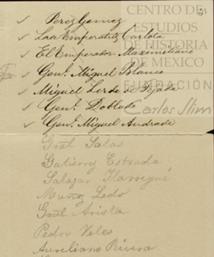 CENTRO DE
ESTUDIOS
DE HISTORIA
DE MEXICO
FUNDACIÓN
Carlos Slim
✓ Perez Gomez
✓ La Emperatriz Carlota
✓ El Emperador Maximiliano
✓ Genl. Miguel Blanco
✓ Miguel Lerdo de Tejada
✓ Genl. Doblado
✓ Genl. Miguel Andrade
Gral Salas
Gutierrez Estrada
Salazar Ilarregui
Muñoz Ledo
Gral Arista
Pedro Velez
Aureliano Rivera